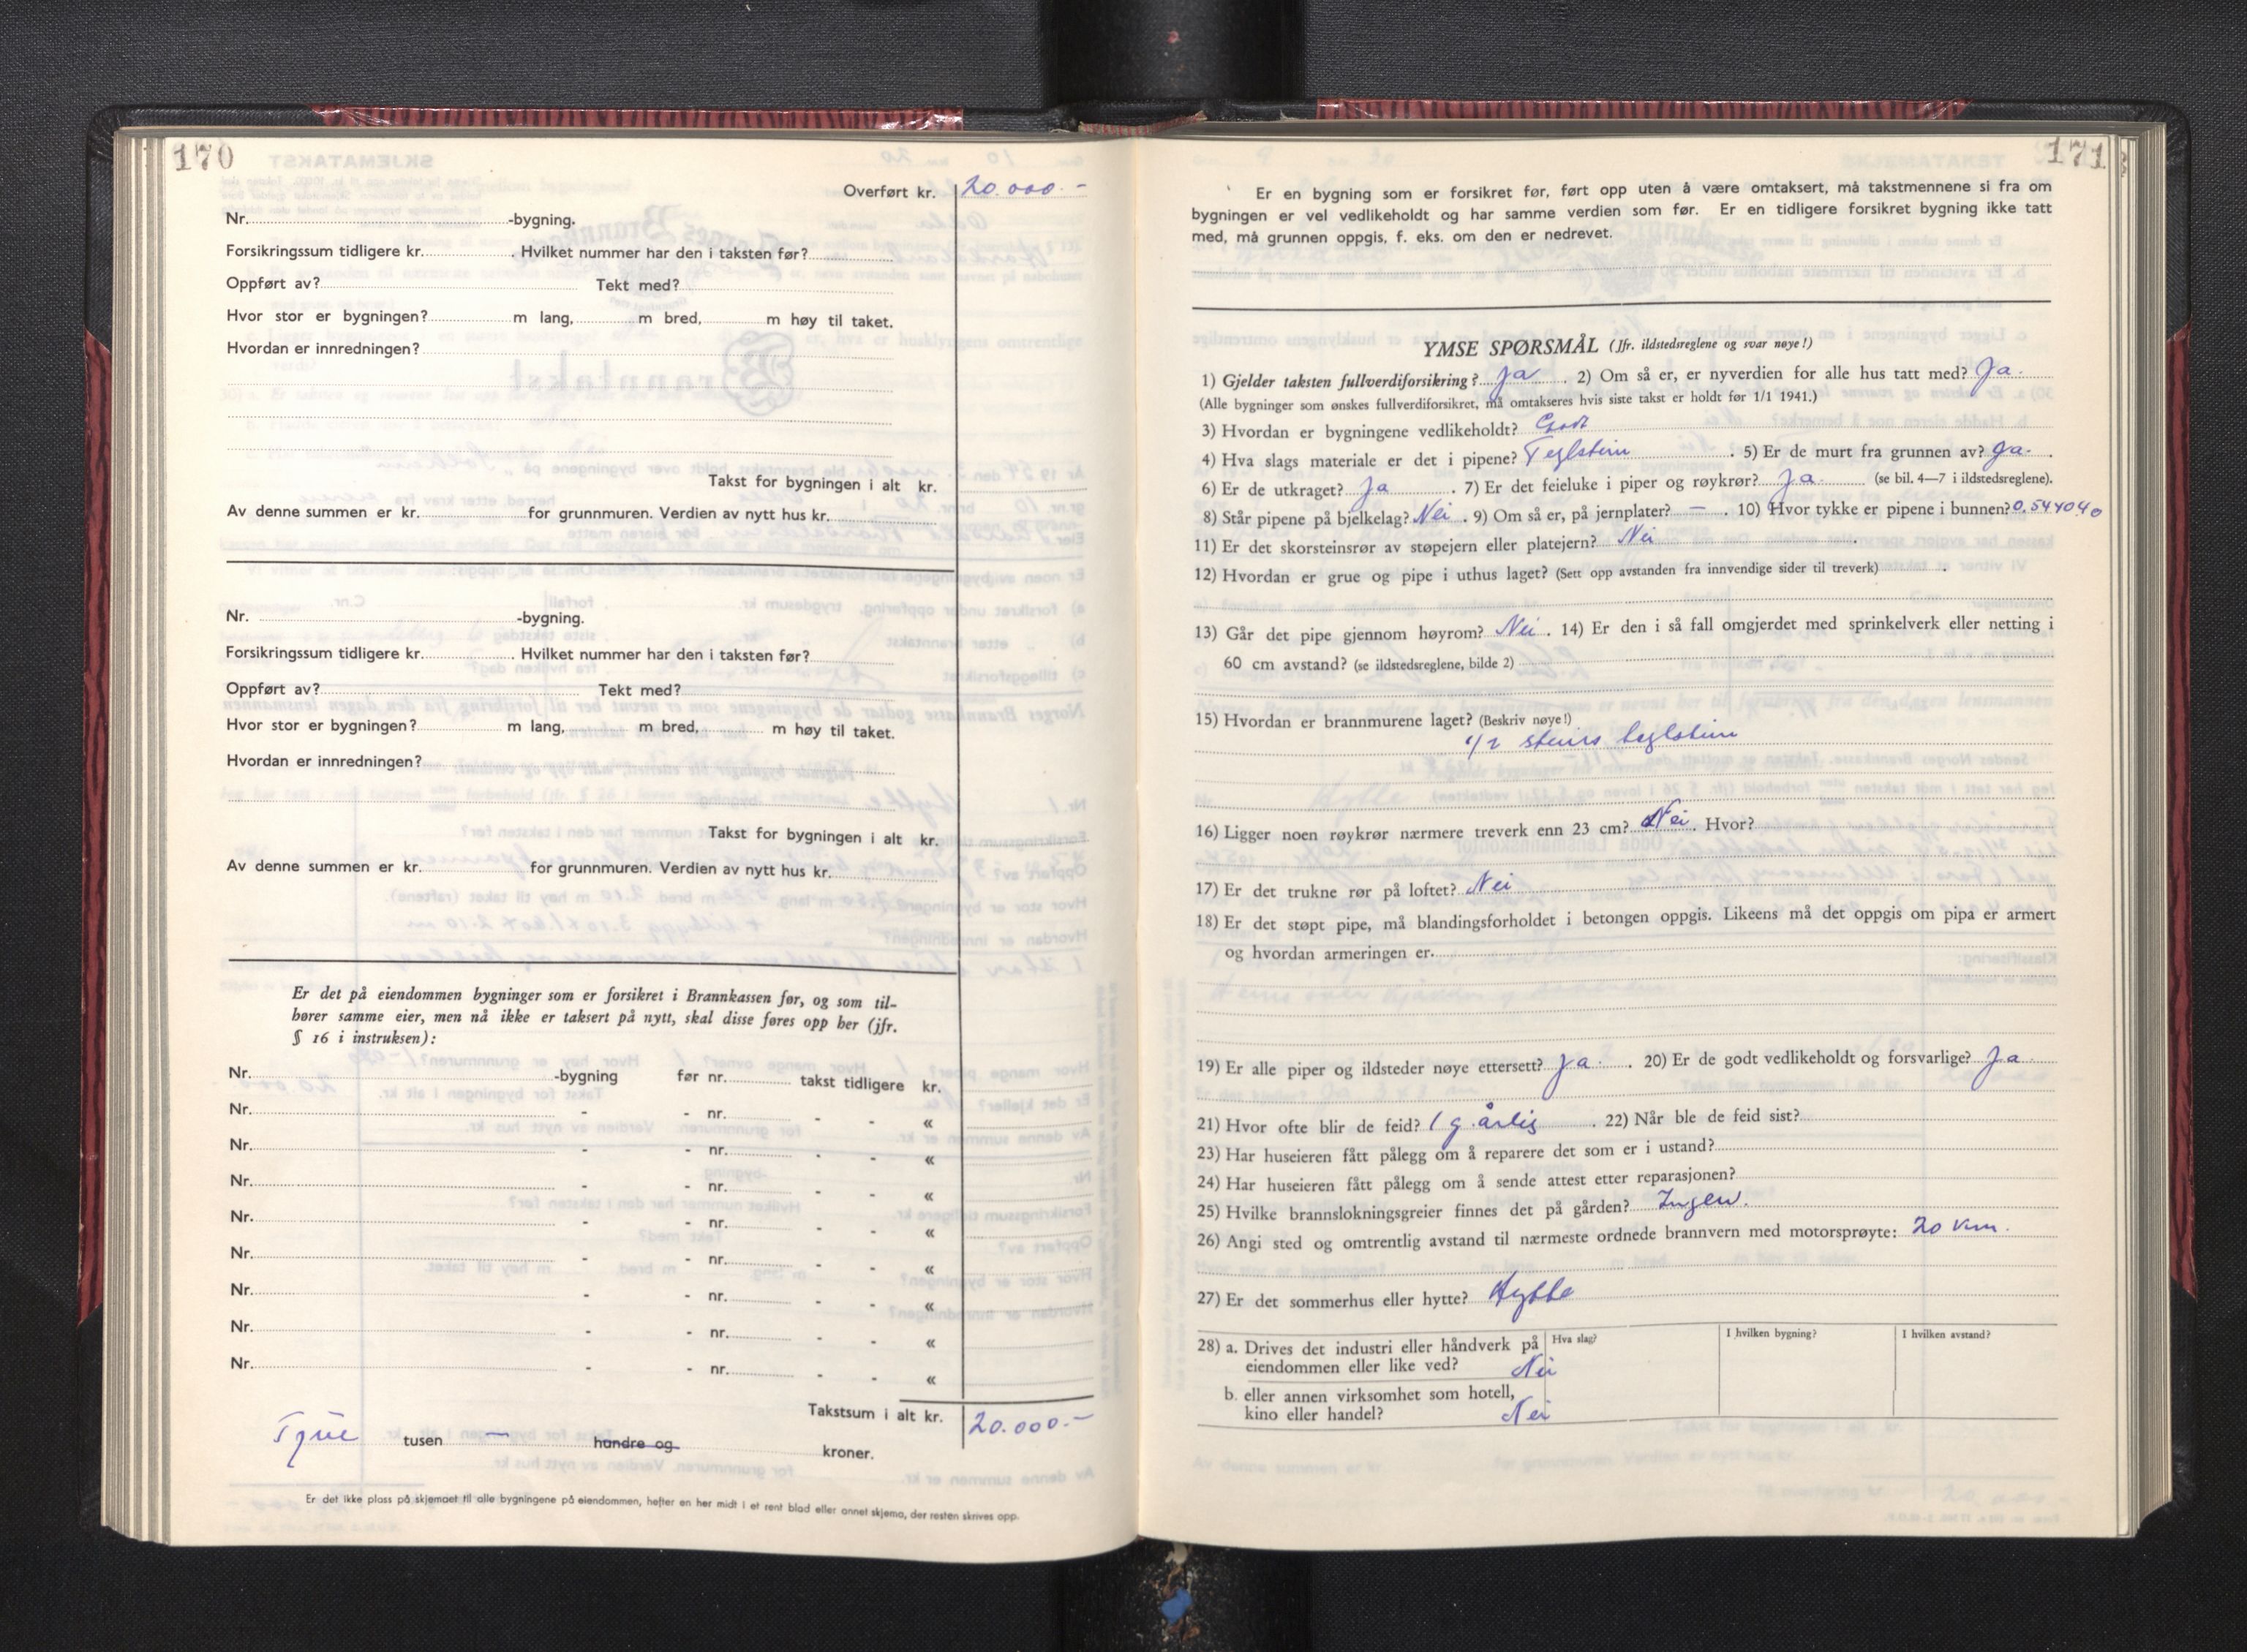 170
Overført kr. 20.000.-
Nr. -bygning.
Forsikringssum tidligere kr. . Hvilket nummer har den i taksten før?
Oppført av? Tekt med?
Hvor stor er bygningen? m lang, m bred, m høy til taket.
Hvordan er innredningen?
Takst for bygningen i alt kr.
Av denne summen er kr. for grunnmuren. Verdien av nytt hus kr.
Nr. -bygning.
Forsikringssum tidligere kr. . Hvilket nummer har den i taksten før?
Oppført av? Tekt med?
Hvor stor er bygningen? m lang, m bred, m høy til taket.
Hvordan er innredningen?
Takst for bygningen i alt kr.
Av denne summen er kr. for grunnmuren. Verdien av nytt hus kr.
Er det på eiendommen bygninger som er forsikret i Brannkassen før, og som til-
hører samme eier, men nå ikke er taksert på nytt, skal disse føres opp her (jfr.
§ 16 i instruksen):
Nr. -bygning før nr. takst tidligere kr.
Nr. - - nr. - - «
Nr. - - nr. - - «
Nr. - - nr. - - «
Nr. - - nr. - - «
Nr. - - nr. - - «
Nr. - - nr. - - «
Nr. - - nr. - - «
Nr. - - nr. - - «
Takstsum i alt kr. 20.000.-
Tjue tusen — hundre og kroner.
Er det ikke plass på skjemaet til alle bygningene på eiendommen, hefter en her midt i et rent blad eller annet skjema, der resten skrives opp.
171
Er en bygning som er forsikret før, ført opp uten å være omtaksert, må takstmennene si fra om
bygningen er vel vedlikeholdt og har samme verdien som før. Er en tidligere forsikret bygning ikke tatt
med, må grunnen oppgis, f. eks. om den er nedrevet.
YMSE SPØRSMÅL (Jfr. ildstedsreglene og svar nøye!)
1) Gjelder taksten fullverdiforsikring? Ja . 2) Om så er, er nyverdien for alle hus tatt med? Ja.
(Alle bygninger som ønskes fullverdiforsikret, må omtakseres hvis siste takst er holdt før 1/1 1941.)
3) Hvordan er bygningene vedlikeholdt? Godt
4) Hva slags materiale er det i pipene? Teglstein . 5) Er de murt fra grunnen av? Ja. .
6) Er de utkraget? Ja . 7) Er det feieluke i piper og røykrør? Ja. (se bil. 4—7 i ildstedsreglene).
8) Står pipene på bjelkelag? Nei . 9) Om så er, på jernplater? — . 10) Hvor tykke er pipene i bunnen?
11) Er det skorsteinsrør av støpejern eller platejern? Nei .
12) Hvordan er grue og pipe i uthus laget? (Sett opp avstanden fra innvendige sider til treverk) .
13) Går det pipe gjennom høyrom? Nei . 14) Er den i så fall omgjerdet med sprinkelverk eller netting i
60 cm avstand? (se ildstedsreglene, bilde 2)
15) Hvordan er brannmurene laget? (Beskriv nøye!)
1/2 steins teglstein
16) Ligger noen røykrør nærmere treverk enn 23 cm? Nei . Hvor?
17) Er det trukne rør på loftet? Nei
18) Er det støpt pipe, må blandingsforholdet i betongen oppgis. Likeens må det oppgis om pipa er armert
og hvordan armeringen er.
19) Er alle piper og ildsteder nøye ettersett? Ja . . 20) Er de godt vedlikeholdt og forsvarlige? Ja
21) Hvor ofte blir de feid? 1 g. årlig . 22) Når ble de feid sist?
23) Har huseieren fått pålegg om å reparere det som er i ustand?
24) Har huseieren fått pålegg om å sende attest etter reparasjonen?
25) Hvilke brannslokningsgreier finnes det på gården? Ingen.
26) Angi sted og omtrentlig avstand til nærmeste ordnede brannvern med motorsprøyte: 20 km.
27) Er det sommerhus eller hytte? Hytte
28) a. Drives det industri eller håndverk på Hva slag? I hvilken bygning? I hvilken avstand?
eiendommen eller like ved? Nei
b. eller annen virksomhet som hotell,
kino eller handel? Nei